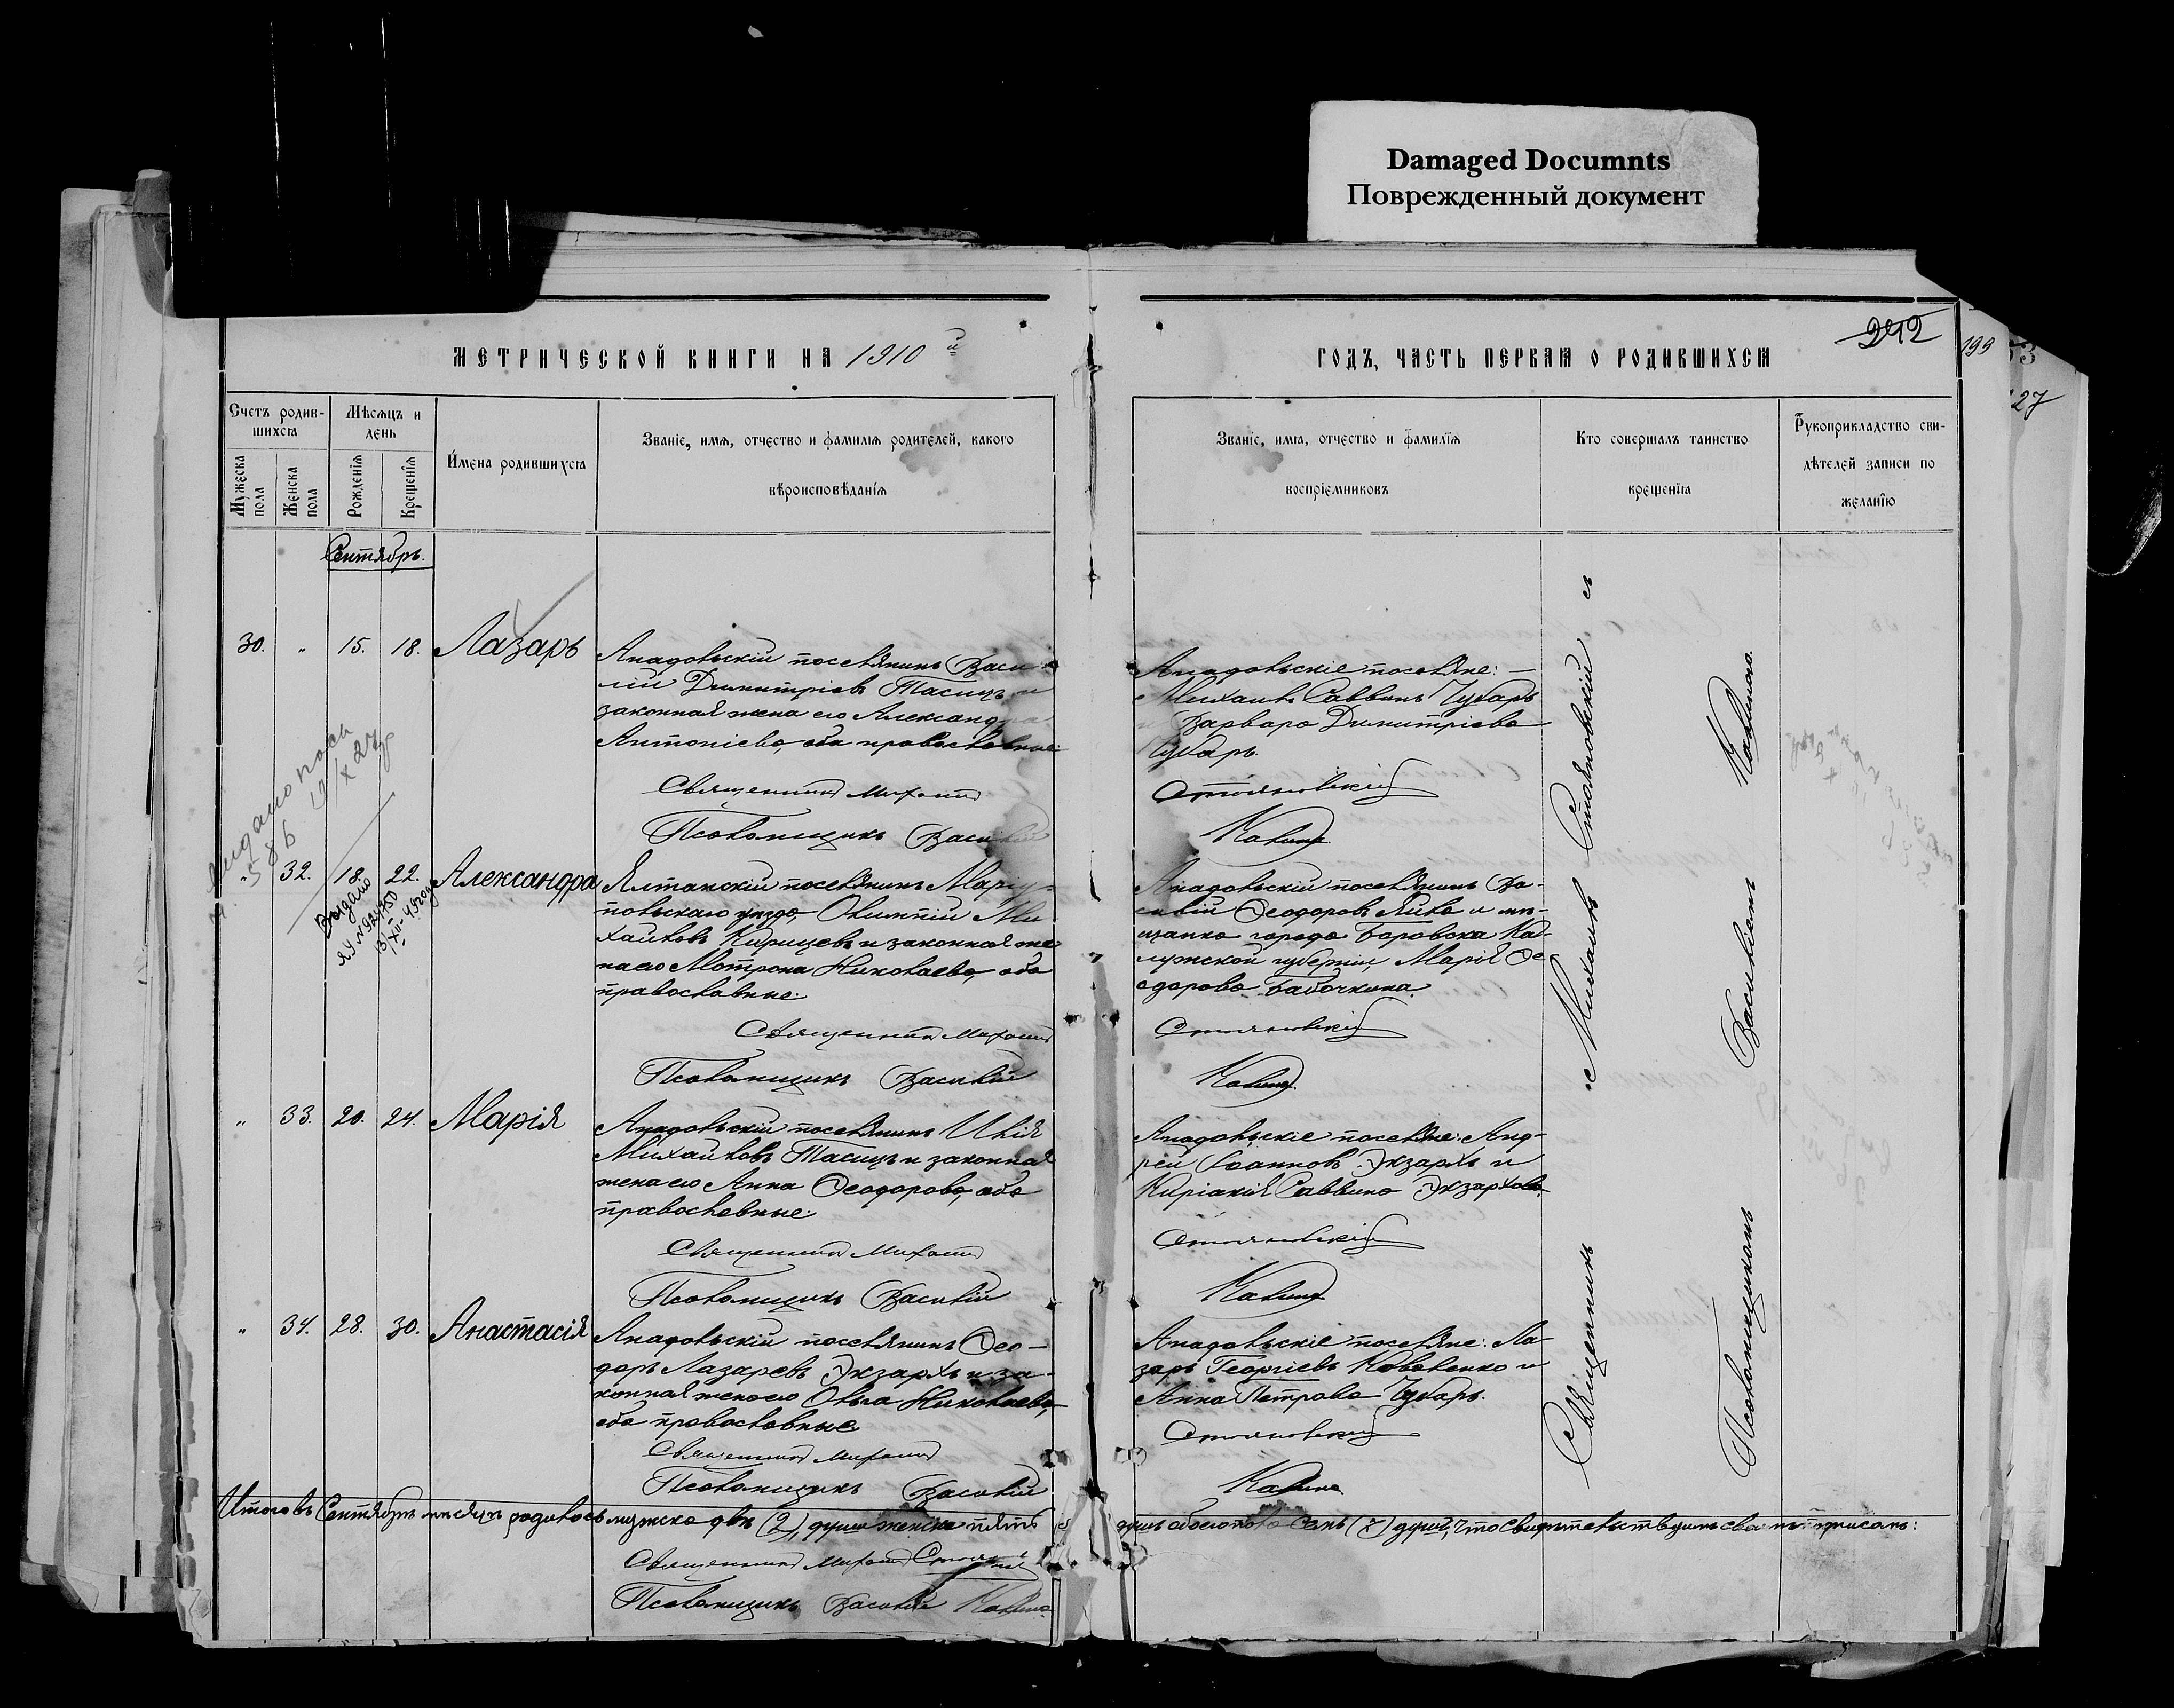 Damaged Documnts
Поврежденный документ
242
199
53
127
МЕТРИЧЕСКОЙ КНИГИ НА 1910 й
ГОДЪ, ЧАСТЬ ПЕРВАЯ О РОДИВШИХСЯ
Счетъ родив-
шихся
Мужеска пола
Женска пола
Мѣсяцъ и
день
Рожденія
Крещенія
Имена родившихся
Званіе, имя, отчество и фамилія родителей, какого
вѣроисповѣданія
Званіе, имя, отчество и фамилія
воспріемниковъ
Кто совершалъ таинство
крещенія
Рукоприкладство сви-
дѣтелей записи по
желанію
Сентябрь.
30. " 15. 18. Лазарь
Анадольскій поселянинъ Васи-
лій Димитріевъ Тасицъ и
законная жена его Александра
Антоніева, оба православные
Священникъ Михаилъ
Псаломщикъ Василій
Анадольскіе поселяне: —
Михаилъ Саввинъ Чубарь
и Варвара Димитріева
Чубарь.
Стояновскій
Калина
" 32. 18. 22. Александра
Выдано
ЯУ № 924750
13/XII-4 1950 года
Ялтанскій поселянинъ Маріу-
польскаго уѣзда, Олимпій Ми-
хайловъ Кирицевъ и законная же-
на его Мотрона Николаева, оба
православные.
Священникъ Михаилъ
Псаломщикъ Василій
Анадольскій поселянинъ Ва-
силій Ѳеодоровъ и мѣ-
щанка города Боровска Ка-
лужской губерніи, Марія Ѳе-
одорова Бабочкина.
Стояновскій
Калина
" 33. 20. 24. Марія
Анадольскій поселянинъ Илія
Михайловъ Тасицъ и законная
жена его Анна Ѳеодорова, оба
православные.
Священникъ Михаилъ
Псаломщикъ Василій
Анадольскіе поселяне: Анд-
рей Іоанновъ Экзархъ и
Киріакія Саввина Экзархова.
Стояновскій
Калина
" 34. 28. 30. Анастасія
Анадольскій поселянинъ Ѳео-
доръ Лазаревъ Экзархъ и за-
конная жена его Ольга Николаева,
оба православные
Священникъ Михаилъ
Псаломщикъ Василій
Анадольскіе поселяне: Ла-
зарь Георгіевъ Коваленко и
Анна Петрова Чубарь.
Стояновскій
Калина
Священникъ Михаилъ Стояновскій съ
Псаломщикомъ Василіемъ Калиною.
Итого въ Сентябрѣ мѣсяцѣ родилось мужска двѣ (2) души женска пять
душъ обоего пола семь (7) душъ, что свидѣтельствуемъ подписомъ:
Священникъ Михаилъ
Псаломщикъ Василій Калина